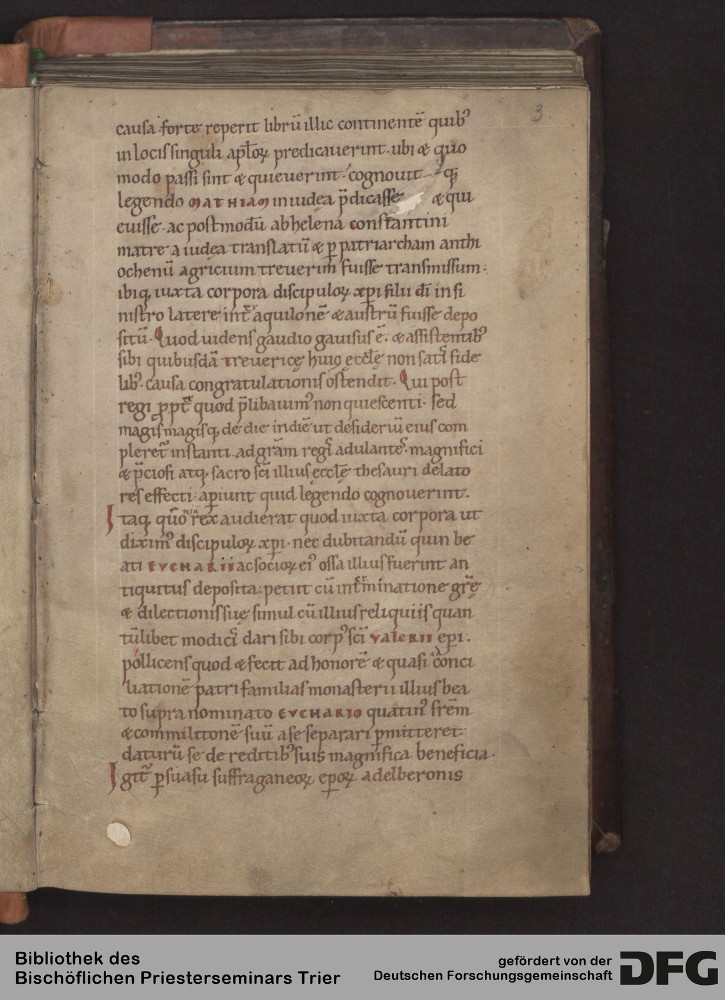 3
causa forte reperit librū illic continentē quib᷒
in locis singuli apl̄oꝝ predicauerint · ubi & quo
modo passi sint & quieuerint · cognouit qꝫ
legendo MATHIAM in iudea p̄dicasse & qui
euisse · ac postmodū ab helena constantini
matre a iudea translatū & ꝑ patriarcham anthi
ochenū agricium treuerim fuisse transmissum :
ibiqꝫ iuxta corpora discipuloꝝ xp̄i filii dī in si
nistro latere int̄ aquilonē & austrū fuisse depo
sitū · Quod uidens gaudio gauisus ē · & assistentib᷒
sibi quibusdā treuericę hui᷒ ęcclę non sat̄ fide
lib᷒ · causa congratulationis ostendit · Qui post
regi ꝓpt̄ quod p̄libauim᷒ non quiescenti · sed
magis magisqꝫ de die in diē ut desideriū eius com
pleret᷑ instanti · ad gr̄am regī adulantes · magnifici
& p̄ciosi atqꝫ sacro sc̄i illius ęcclę thesauri delato
res effecti · aꝑiunt quid legendo cognouerint ·
Itaqꝫ qūo rex audierat quod iuxta corpora ut
dixim᷒ discipuloꝝ xp̄i · nec dubitandū quin be
ati EVCHARII ac socioꝝ ei᷒ ossa illius fuerint an
tiquitus deposita : petiit cū int̄minatione gr̄ę
& dilectionis suę simul cū illius reliquiis quan
tūlibet modici dari sibi corp᷒ sc̄i VALERII ep̄i ·
pollicens quod & fecit ad honorē & quasi conci
liationē patrifamilias monasterii illius bea
to supra nominato EVCHARIO quatin᷒ fr̄em
& commilitonē suū a se separari ꝑmitteret
daturū se de redditib᷒ suis magnifica beneficia ·
Igit᷑ ꝑsuasu suffraganeoꝝ ep̄oꝝ adelberonis
Bibliothek des
Bischöflichen Priesterseminars Trier
gefördert von der
Deutschen Forschungsgemeinschaft
DFG